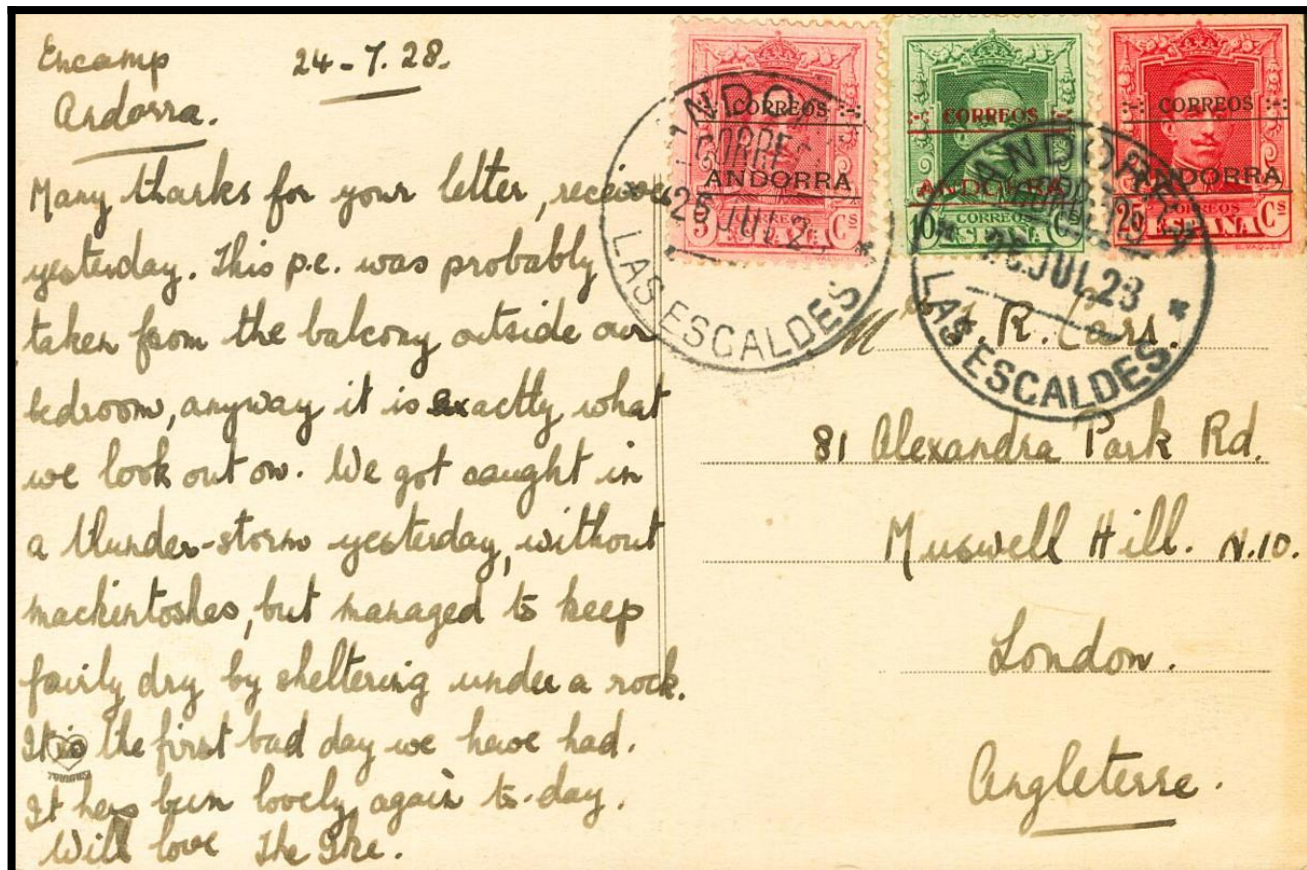 Encamp 24-7.28.
Andorra.
Many thanks for your letter, received
yesterday. This p.c. was probably
taken from the balcony outside our
bedroom, anyway it is exactly what
we look out on. We got caught in
a thunder-storm yesterday, without
mackintoshes, but managed to keep
fairly dry by sheltering under a rock.
It is the first bad day we have had.
It has been lovely again to-day.
With love The
CORREOS
ANDORRA
5 CORREOS Cs
ESPAÑA
CORREOS
ANDORRA
10 CORREOS Cs
ESPAÑA
CORREOS
ANDORRA
25 CORREOS Cs
ESPAÑA
ANDORRA
CORREOS
25 JUL 2
LAS ESCALDES
ANDORRA
CORREOS
JUL 23
LAS ESCALDES
R. Carr.
81 Alexandra Park Rd.
Muswell Hill. N.10.
London.
Angleterre.